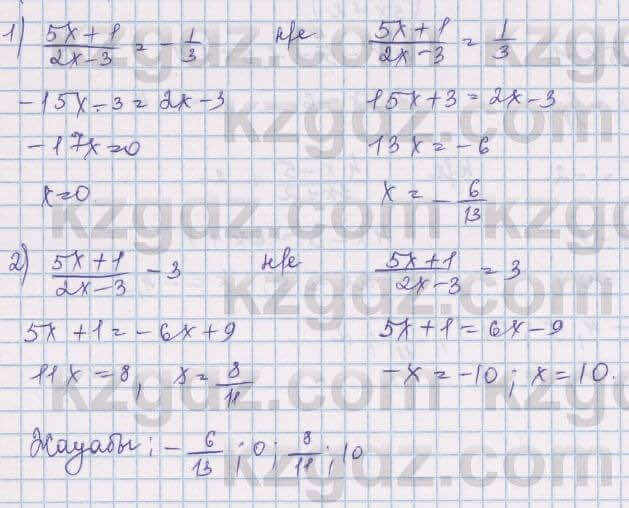 1) (5x+1)/(2x-3) = -1/3 нне (5x+1)/(2x-3) = 1/3
-15x-3 = 2x-3 15x+3 = 2x-3
-17x=0 13x = -6
x=0 x = -6/13
2) (5x+1)/(2x-3) - 3 нне (5x+1)/(2x-3) = 3
5x+1 = -6x+9 5x+1 = 6x-9
11x = 8, x = 8/11 -x = -10; x = 10.
Жауабы: -6/13; 0; 8/11; 10
kzgdz.com